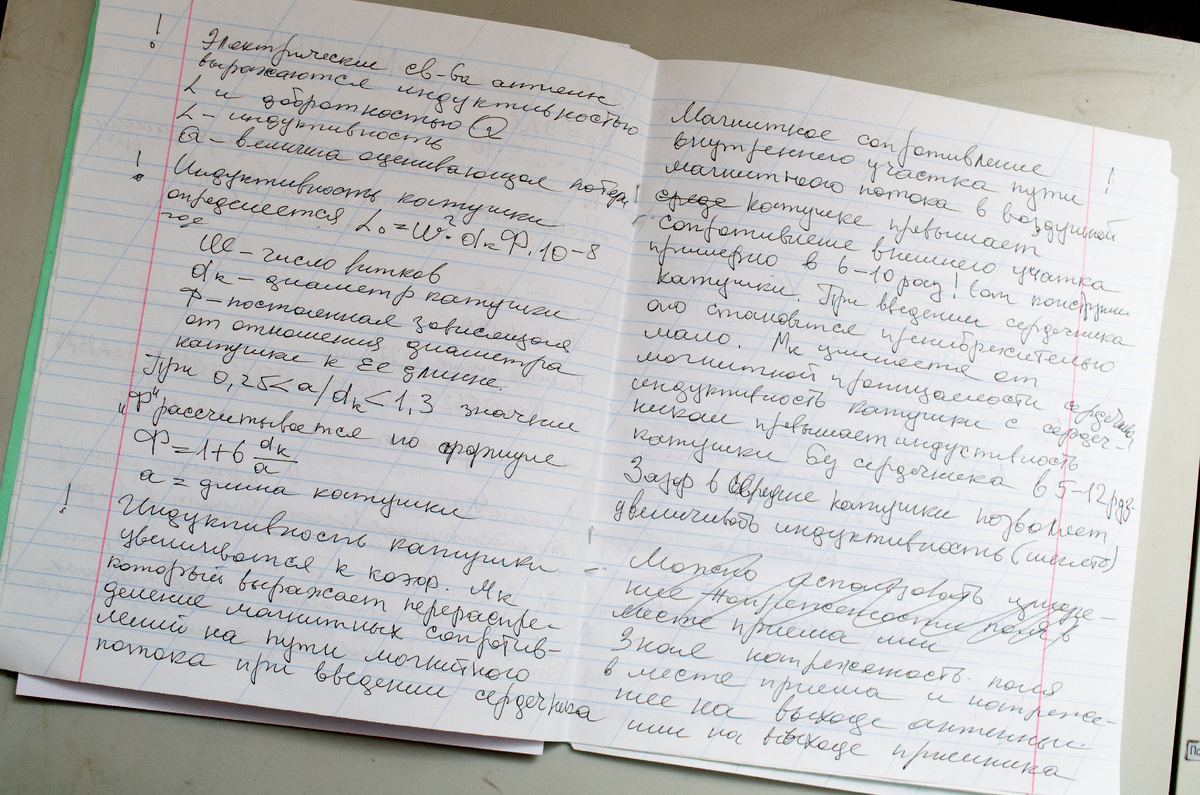 ! Электрические св-ва антенн
выражаются индуктивностью
L и добротностью Q
L – индуктивность
Q – величина оценивающая потери
! Индуктивность катушки
определяется L₀ = W² · dк Ф · 10 – 8
где
W – число витков
dк – диаметр катушки
Ф – постоянная зависящая
от отношения диаметра
катушки к ее длинне.
При 0,25 < a/dк < 1,3 значение
"Ф" рассчитывается по формуле
Ф = 1 + 6 dк/a
a = длина катушки
! Индуктивность катушки
увеличивается к коэф. Mк
который выражает перераспре-
деление магнитных сопротив-
лений на пути магнитного
потока при введении сердечника
Магнитное сопротивление
внутреннего участка пути !
магнитного потока в воздушной
среде катушке превышает
сопротивление внешнего участка
примерно в 6–10 раз!
катушки. При введении сердечника
оно становится пренебрежительно
мало. Mк от
магнитной проницаемости сердечника
индуктивность катушки с сердеч-
ником превышает индуктивность
катушки без сердечника в 5–12 раз
Зазор в середине катушки позволяет
увеличивать индуктивность
Можно использовать измере-
ние напряженности поля в
месте приема или
Зная напряженность поля
в месте приема и напряже-
ние на выходе антенны
или на выходе приемника